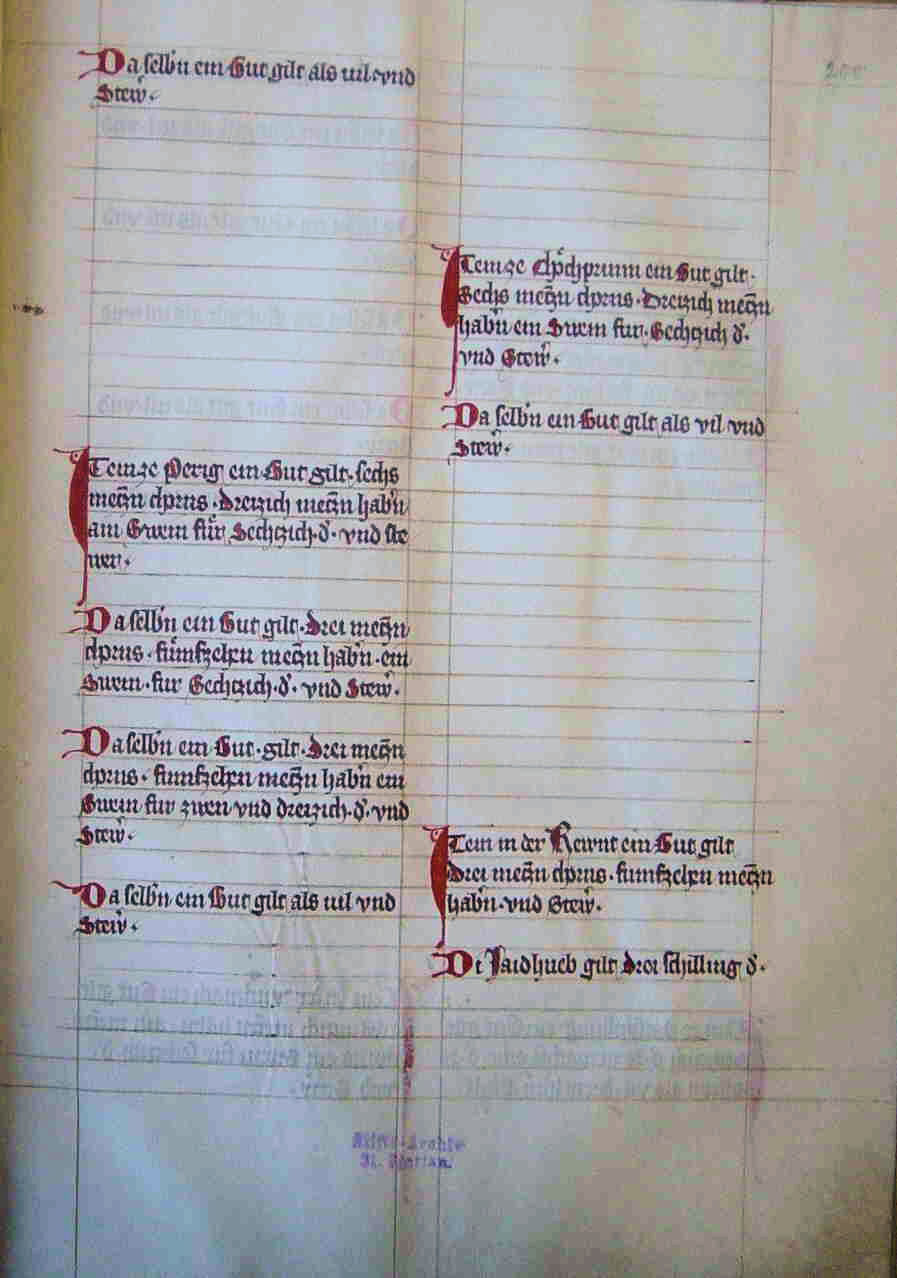 Da selbn ein Gut gilt als uil vnd
Stew̄.
Item ze Perig ein Gut gilt. sechs
meczn chorns. Dreizich meczn habn
ain Swein für Sechczich. d. vnd ste
wer.
Da selbn ein Gut gilt. Drei meczn
chorns. fumfzehen meczn habn. ein
Swein. fur Sechczich. d. vnd Stew̄.
Da selbn ein Gut. gilt. Drei meczn
chorns. fumfzehen meczn habn ein
Swein fur zwen vnd dreizich. d. vnd
Stew̄.
Da selbn ein Gut gilt als uil vnd
Stew̄.
200
Item ze ein Gut gilt.
Sechs meczn chorns. Dreizich meczn
habn ein Swein fur. Sechczich d.
vnd Stew̄.
Da selbn ein Gut gilt als vil vnd
Stew̄.
Item in der ein Gut gilt
Drei meczn chorns. fumfzehen meczn
habn. vnd Stew̄.
Di Jaidhueb gilt drei schilling d.
Stifts-Archiv
St. Florian.